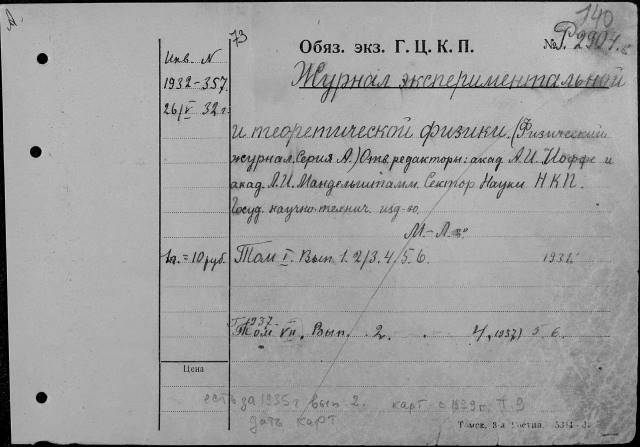 А.
140
73
Обяз. экз. Г. Ц. К. П.
№ Р2904.
Инв. N
1932-357.
26/V 32 г.
Журнал экспериментальной
и теоретической физики. (Физический
журнал, Серия А.) Отв. редакторы: акад. А.И. Иоффе и
акад. Л.И. Мандельштамм. Сектор Науки НКП.
Госуд. научно-технич. изд-во.
М.-Л.
1г. = 10 руб.
Том I. Вып 1. 2/3. 4/5. 6. 1931.
1937.
Том VII. Вып. 2. 4, 1937) 5. 6.
Цена
есть за 1935 г вып 2. карт с 1939 г. Т. 9
дать карт
Томск, 3-я